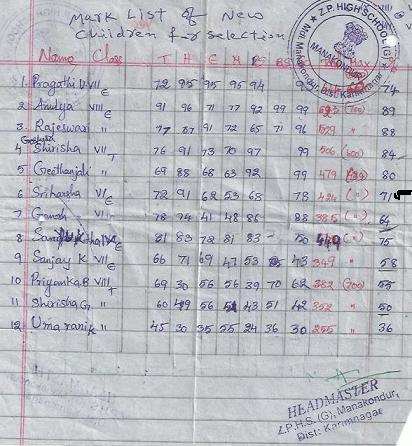 Mark List of New
Children for selection
Z.P. HIGH SCHOOL (G)
Manakondur, Dist: Karimnagar
Name Class T H E M PS BS Max %
1. Pragathi U VIII E 72 95 95 95 94 74
2. Amulya VIII E 91 96 71 77 92 99 97 623 (700) 89
3. Rajeswari " 77 87 91 72 65 71 96 " 88
4 Shirisha VII T 76 91 73 70 97 99 506 (600) 84
5 Geethanjali " 69 88 68 63 92 99 479 80
6 Sriharsha VI E 72 91 62 53 68 78 424 (") 71
7 Ganesh 78 74 41 48 86 88 385 (") 64
8 E 81 83 72 81 83 - 50 449 " 75
9 Sanjay K VII E 66 71 69 47 53 43 349 " 58
10 Priyanka B VIII T 69 30 56 56 39 70 62 382 (700) 55
11 Shirisha G " 60 49 56 51 43 51 42 352 " 50
12 Uma rani K " 45 30 35 55 24 36 30 255 " 36
HEADMASTER
Z.P.H.S. (G), Manakondur,
Dist: Karimnagar